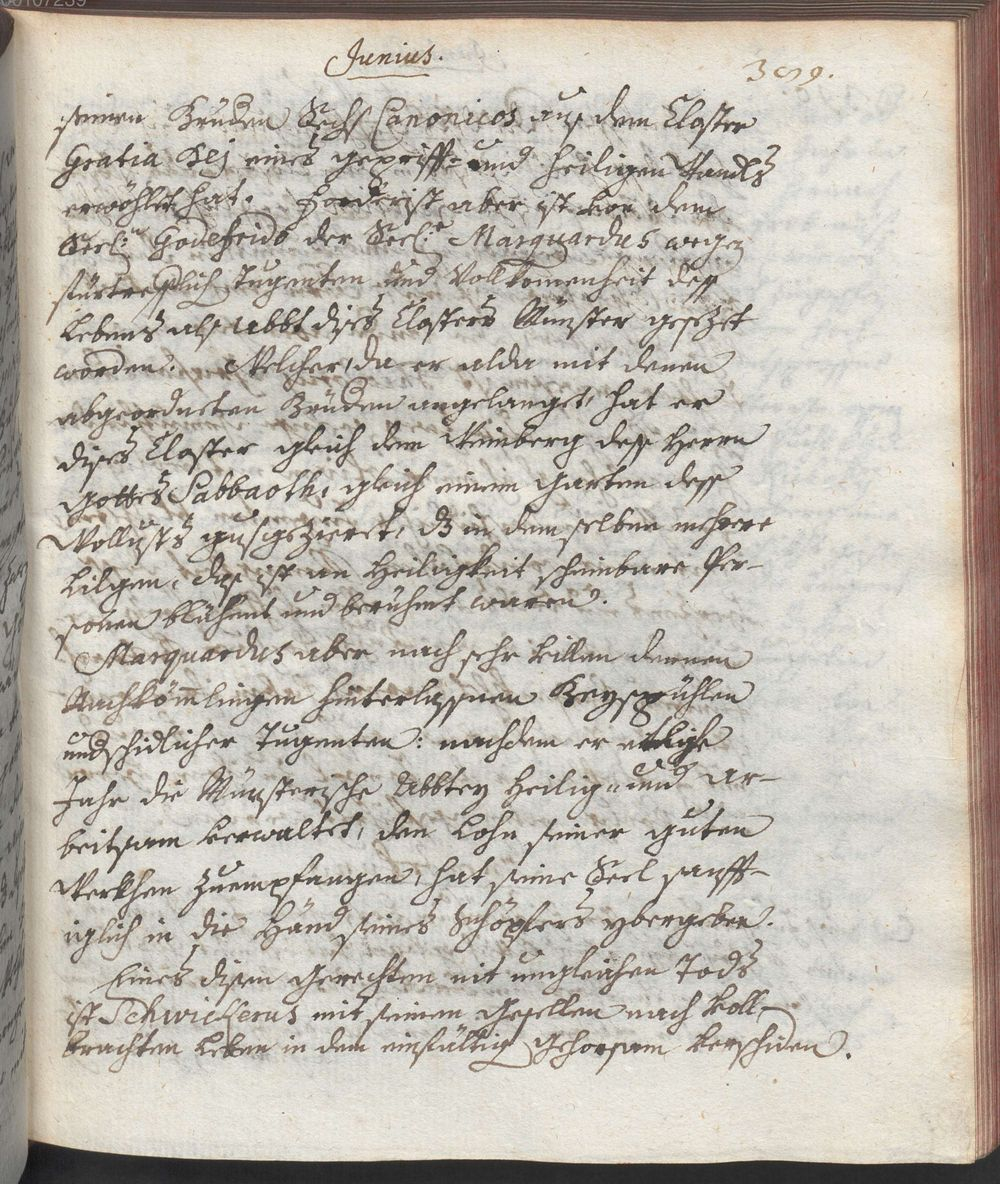 Junius.
309.
seinen Brüdern Sechs Canonicos aus dem Closter
Gratia Dej eines geprüfft- und heiligen Wandls
erwöhlet hat. Forderist aber ist von dem
Seel: Godefrido der Seel: Marquardus wegen
fürtrefflich Tugenten und Vollkomenheit dess
Lebens als Abbt dises Closters Münster gesezet
worden. Welcher, da er alda mit denen
abgeordneten Brüdern angelanget, hat er
dises Closter gleich dem Weinberg dess Herrn
Gottes Sabbaoth, gleich einem Garten dess
Wollusts ausgezieret, dz in demselben mehrere
Lilgen, das ist an Heiligkeit scheinbare Per-
sonen blühent und berühmt waren.
Marquardus aber nach sehr villen denen
Nachkömlingen hinterlassnen Beyspühlen
undschidlicher Tugenten: nachdem er etlich
Jahr die Münsterische Abbtey heilig- und ar-
beitsam verwaltet, den Lohn seiner guten
Werkhen zuempfangen, hat seine Seel sanfft-
iglich in die Händ seines Schöpfers ybergeben.
Eines disem Gerechten nit ungleichen Tods
ist Schwickerus mit seinen Gesellen nach voll-
brachten Leben in dem einfältig Gehorsam verschiden.